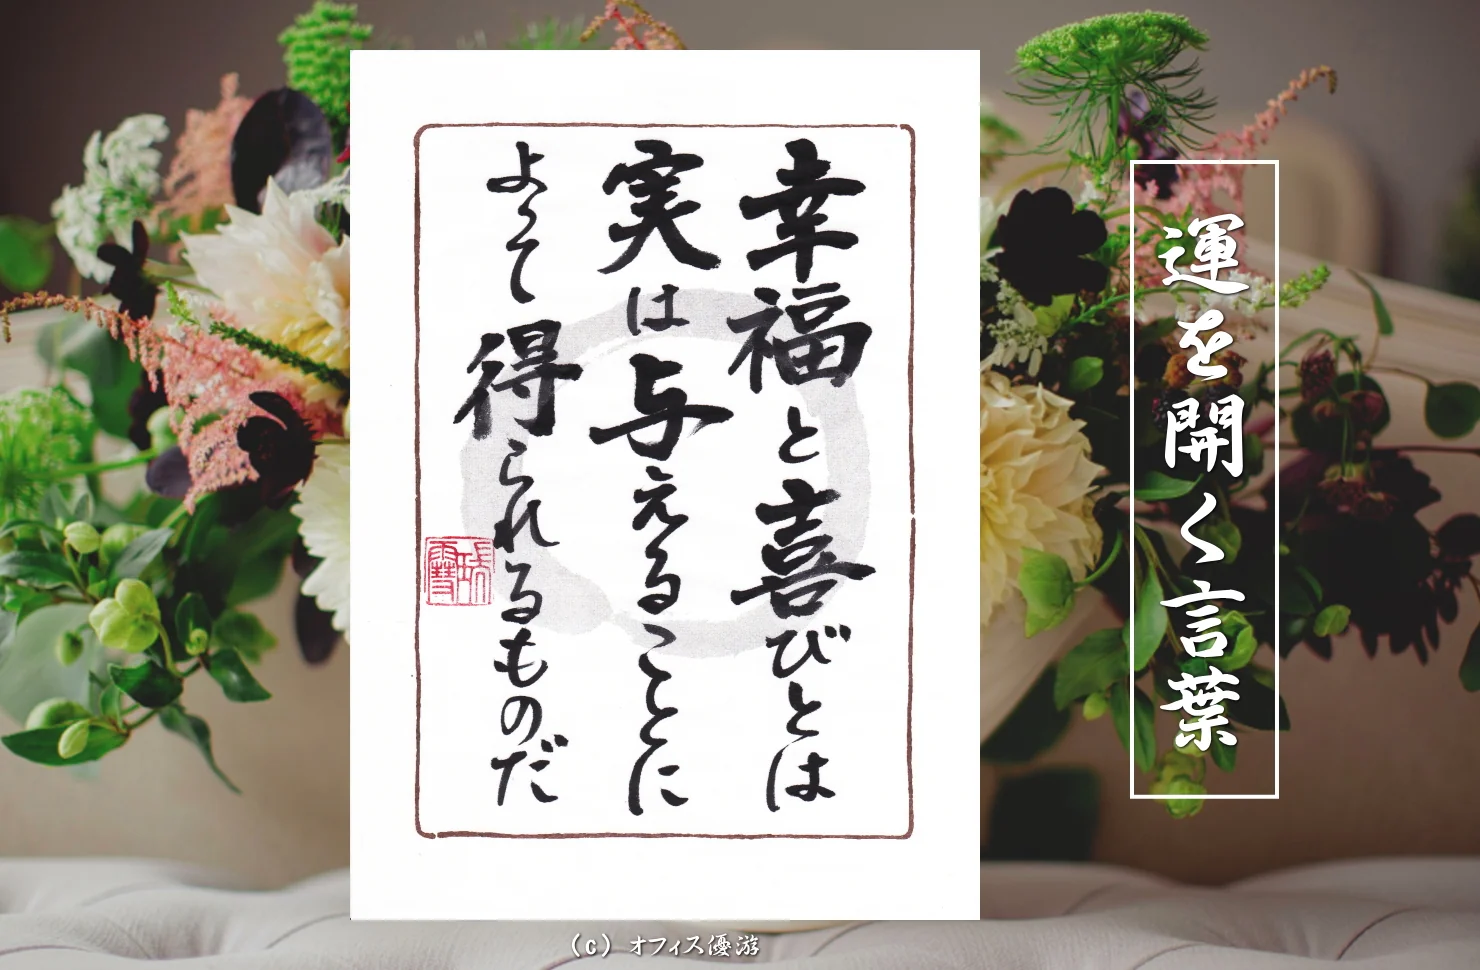 運を開く言葉
幸福と喜びとは
実は与えることに
よって得られるものだ
(c) オフィス優游